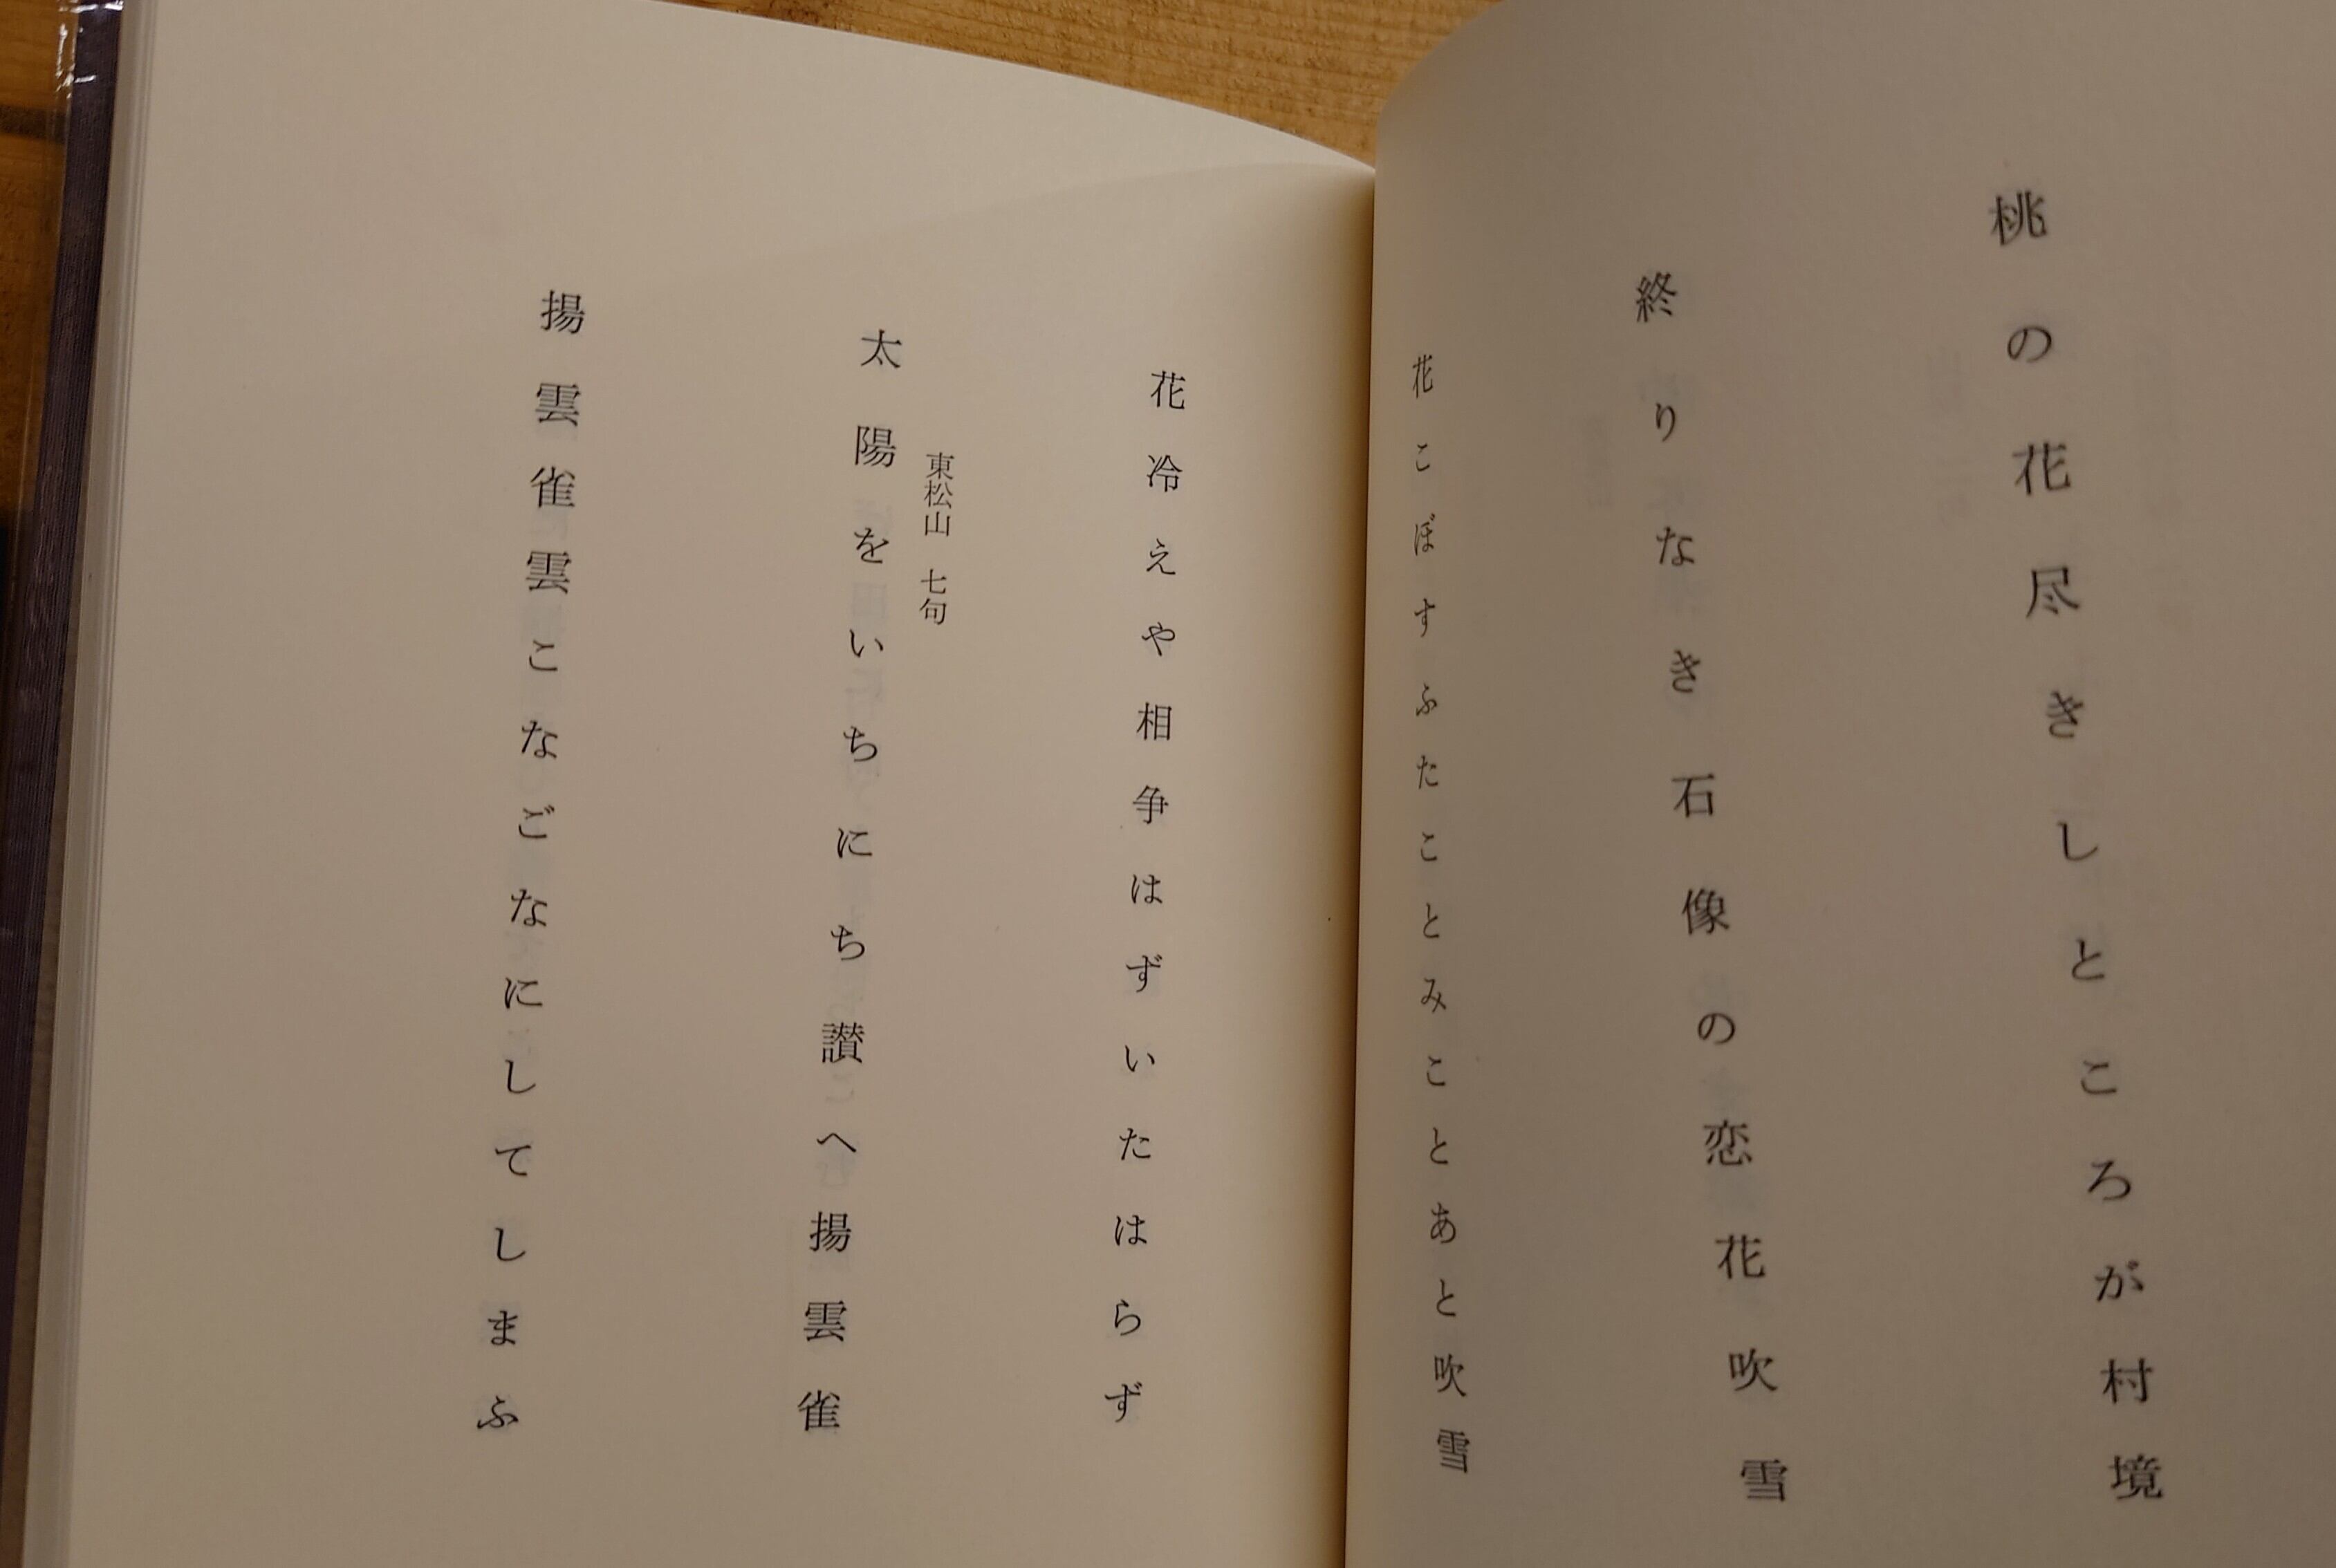 桃の花尽きしところが村境
終りなき石像の恋花吹雪
花こぼすふたことみことあと吹雪
花冷えや相争はずいたはらず
東松山 七句
太陽をいちにち讃へ揚雲雀
揚雲雀雲こなごなにしてしまふ